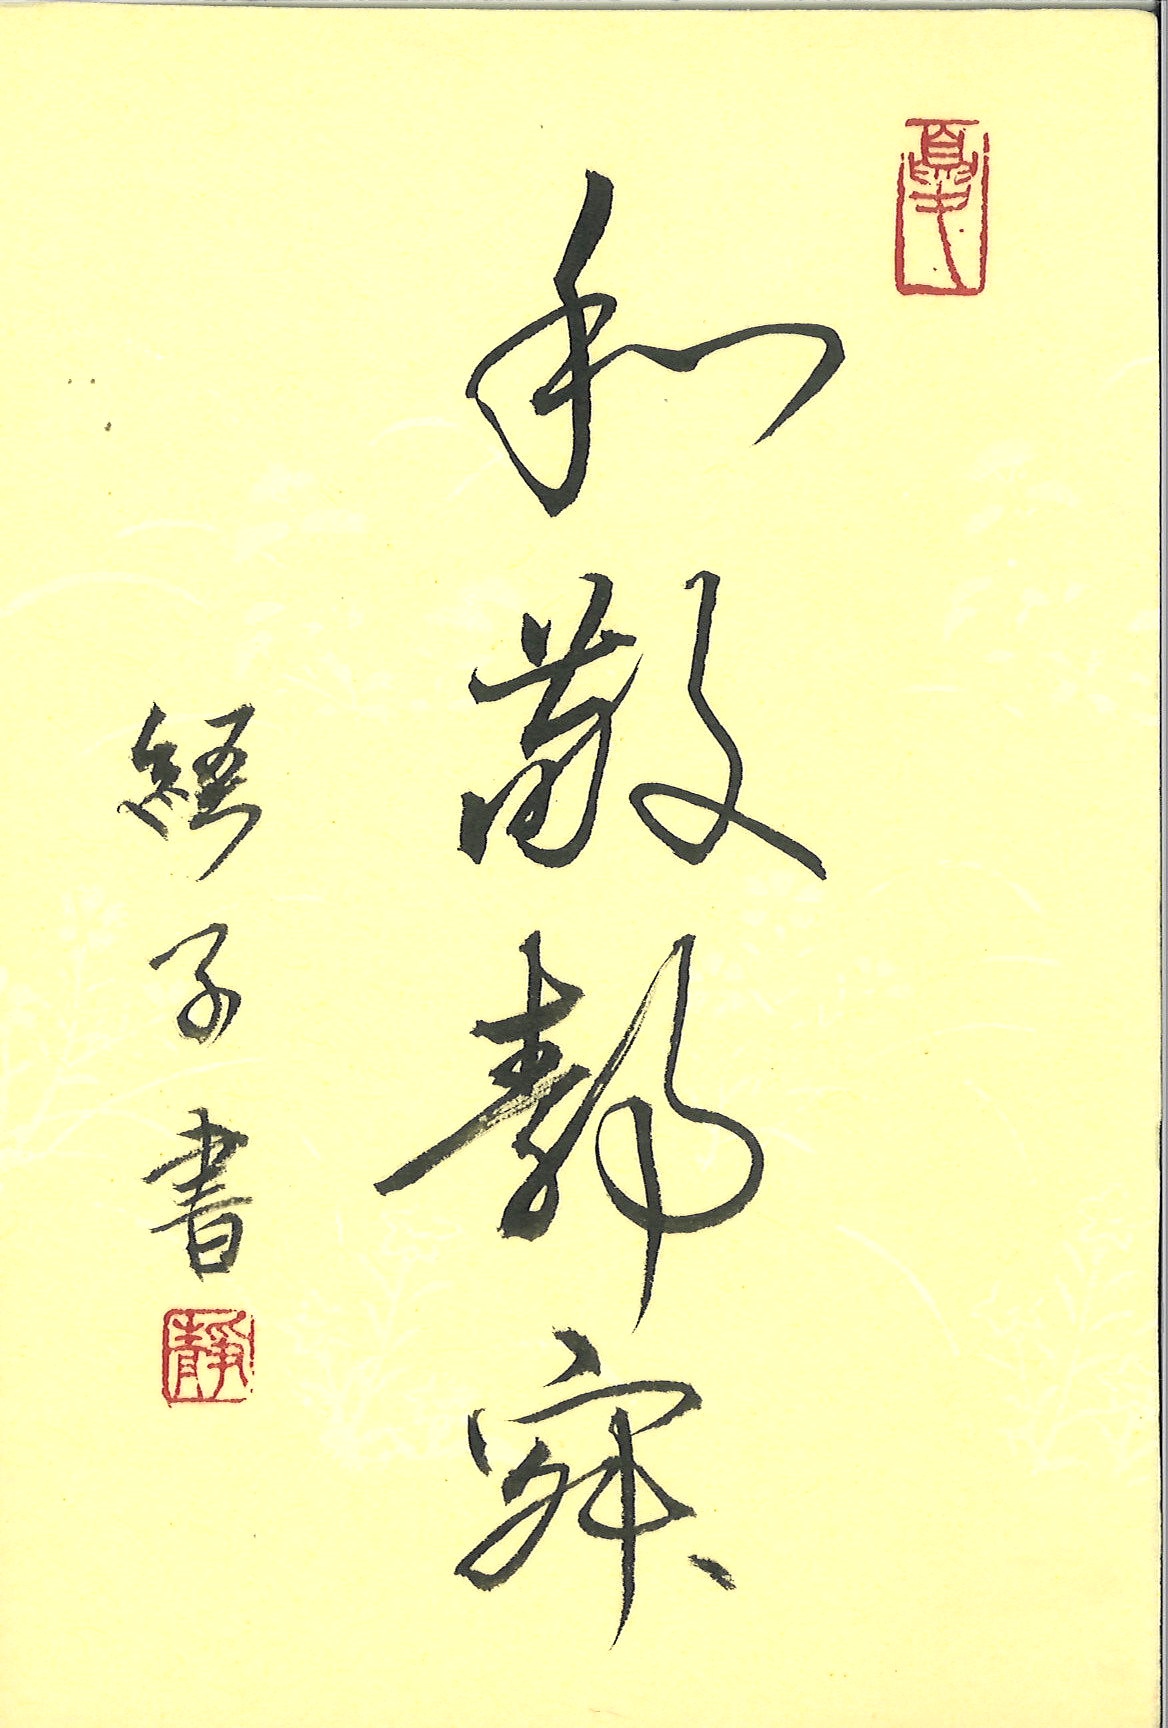 和敬静寂
子書
靜